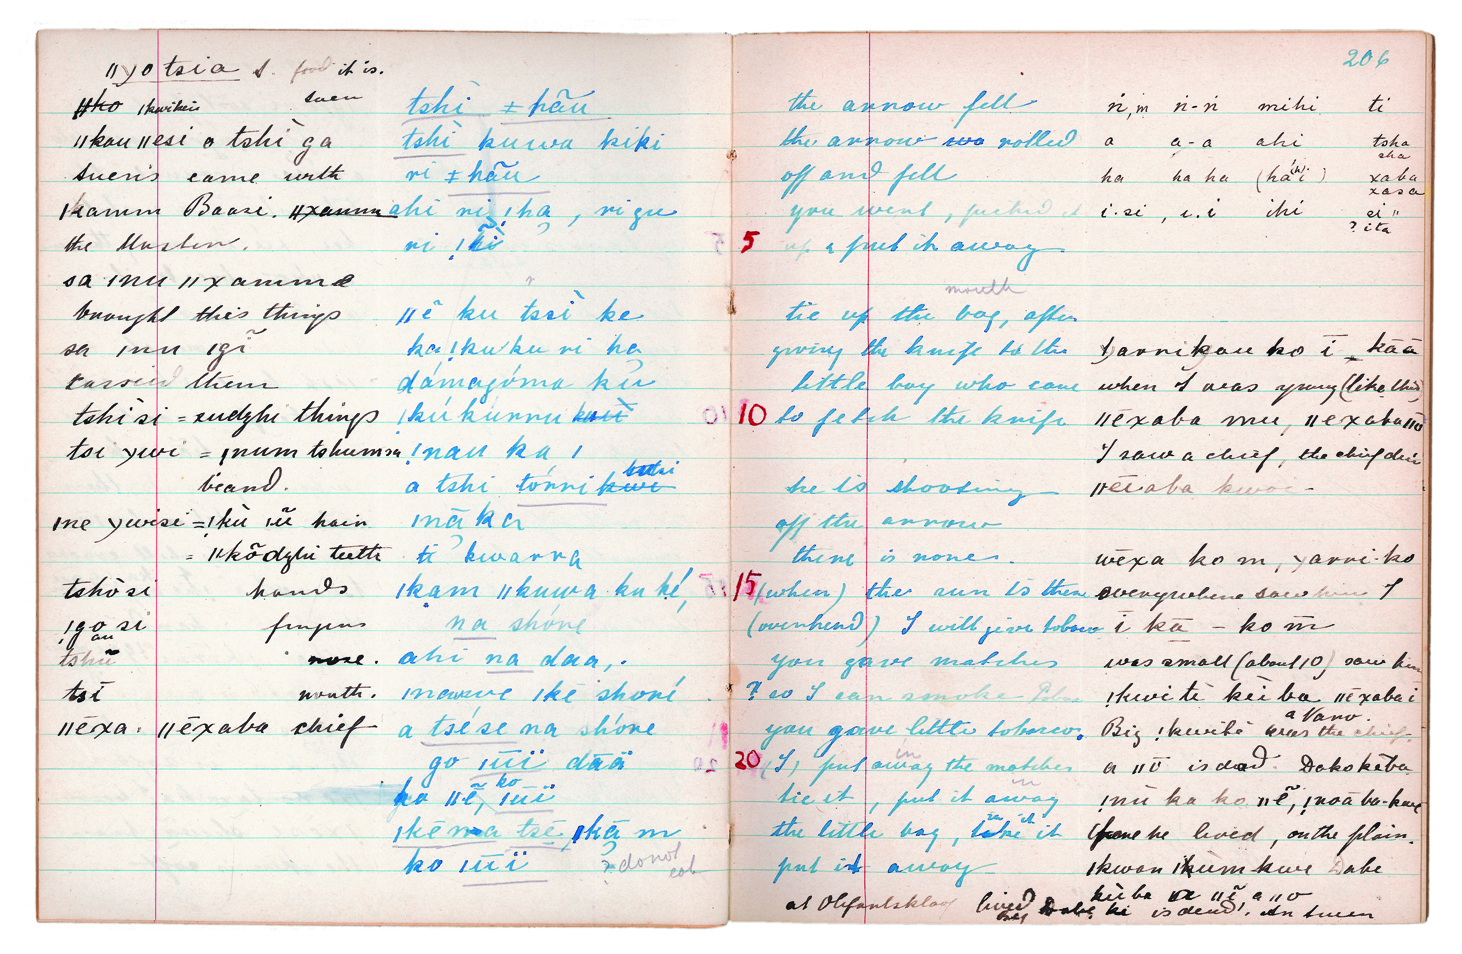 206
ǁɣo tsia s. food it is.
ǁko ǀkwikui suen
ǁkau ǁesi o tshi ga
suen's came with
ǀkamm Baasi. ǁxamm
the Master.
sa ǀnu ǁxamme
brought this things
sa ǀnu ǀgĩ
carried them
tshisi = xudzhi things
tsi ɣwi = ǀnum tshumsa
beard.
ǀne ɣwisi = ǃkù ǀũ hair
= ǁkõdzhi teeth
tshòsi hands
ǀgo si fingers
au
tshũ nose.
tsí mouth.
ǁēxa. ǁēxaba chief
tshì ǂhãu
tshì kuwa kiki
ri ǂhãu
ahi ri ǃha, rigu
ri ǃkĩ
ǁẽ ku tssì ke
ka ǃkuku ri ha
dámagóma kũ
ǀkúkúrru kuù
ǃnau ka ǀ
a tshi tórri kwi butsi
ǀnāka
ti kwarra
ǀkam ǁkuwa ku ké,
na shóre
ahi na daa,.
ǀnauwe ǀkē shoré
a tsése na shóre
go ǀũï dãä
ko ǁẽ, ko ǀũï
ǀkēma tsé, ǀkā m
ko ǀũï ? do not eat
the arrow fell
the arrow was rolled
off and fell
you went, picked it
5 up & put it away
mouth
tie up the bag, after
giving the knife to the
little boy who came
10 to fetch the knife
he is shooting
off the arrow
there is none.
15 (when) the sun is there
(overhead) I will give tobacco
you gave matches
? so I can smoke
you gave little tobacco.
20 (I) put away in the matches
tie it, put it away in
the little bag, tie it
put it away
at Olifantskloof lived
ṅ,m ṅ-ṅ mihi ti
a a-a ahi tsha
sha
ha ha ha (há(h)i) xaba
xasa
i.si, i.i ihi si "
? ita
ɣarrikau ko ī _ kãã
when I was young (like this)
ǁēxaba mu, ǁexaba ǁō
I saw a chief, the chief died
ǁēxaba kwai -
wēxa ko m, ɣarri-ko
everywhere saw him I
ī kā - ko m̄
was small (about 10) saw him
ǃkwi tè kēi ba ǁēxaba ī
a Naro.
Big ǃkwibè was the chief.
a ǁō is dead. Dakokēba
ǃnū ka ko ǁẽ, ǃnoā ba-kwe
he lived, on the plain.
ǀkwan ǀkūm kwe Dabe
kūba ǁẽ, a ǁo
Dabe ki is dead. In Suen